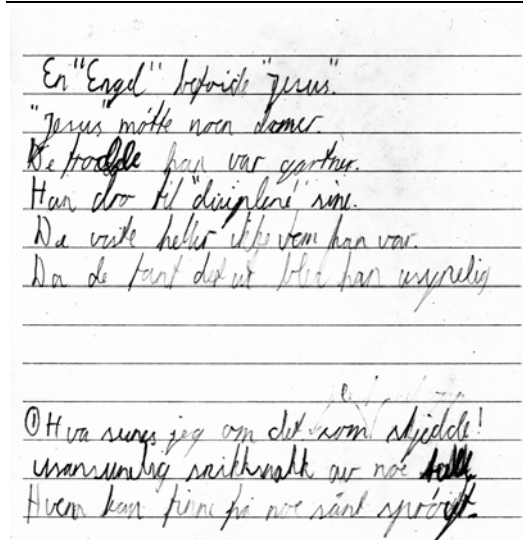 En "Engel" befride "Jesus".
"Jesus" møtte noen damer.
De trodde han var gartner.
Han dro til "disiplene" sine.
De viste heller ikke vem han var.
Da de fant det ut ble han usynelig
① Hva synes jeg om det som skjedde!
usansynlig snikksnakk av noe
Hvem kan finne på noe sånt sprøyt.